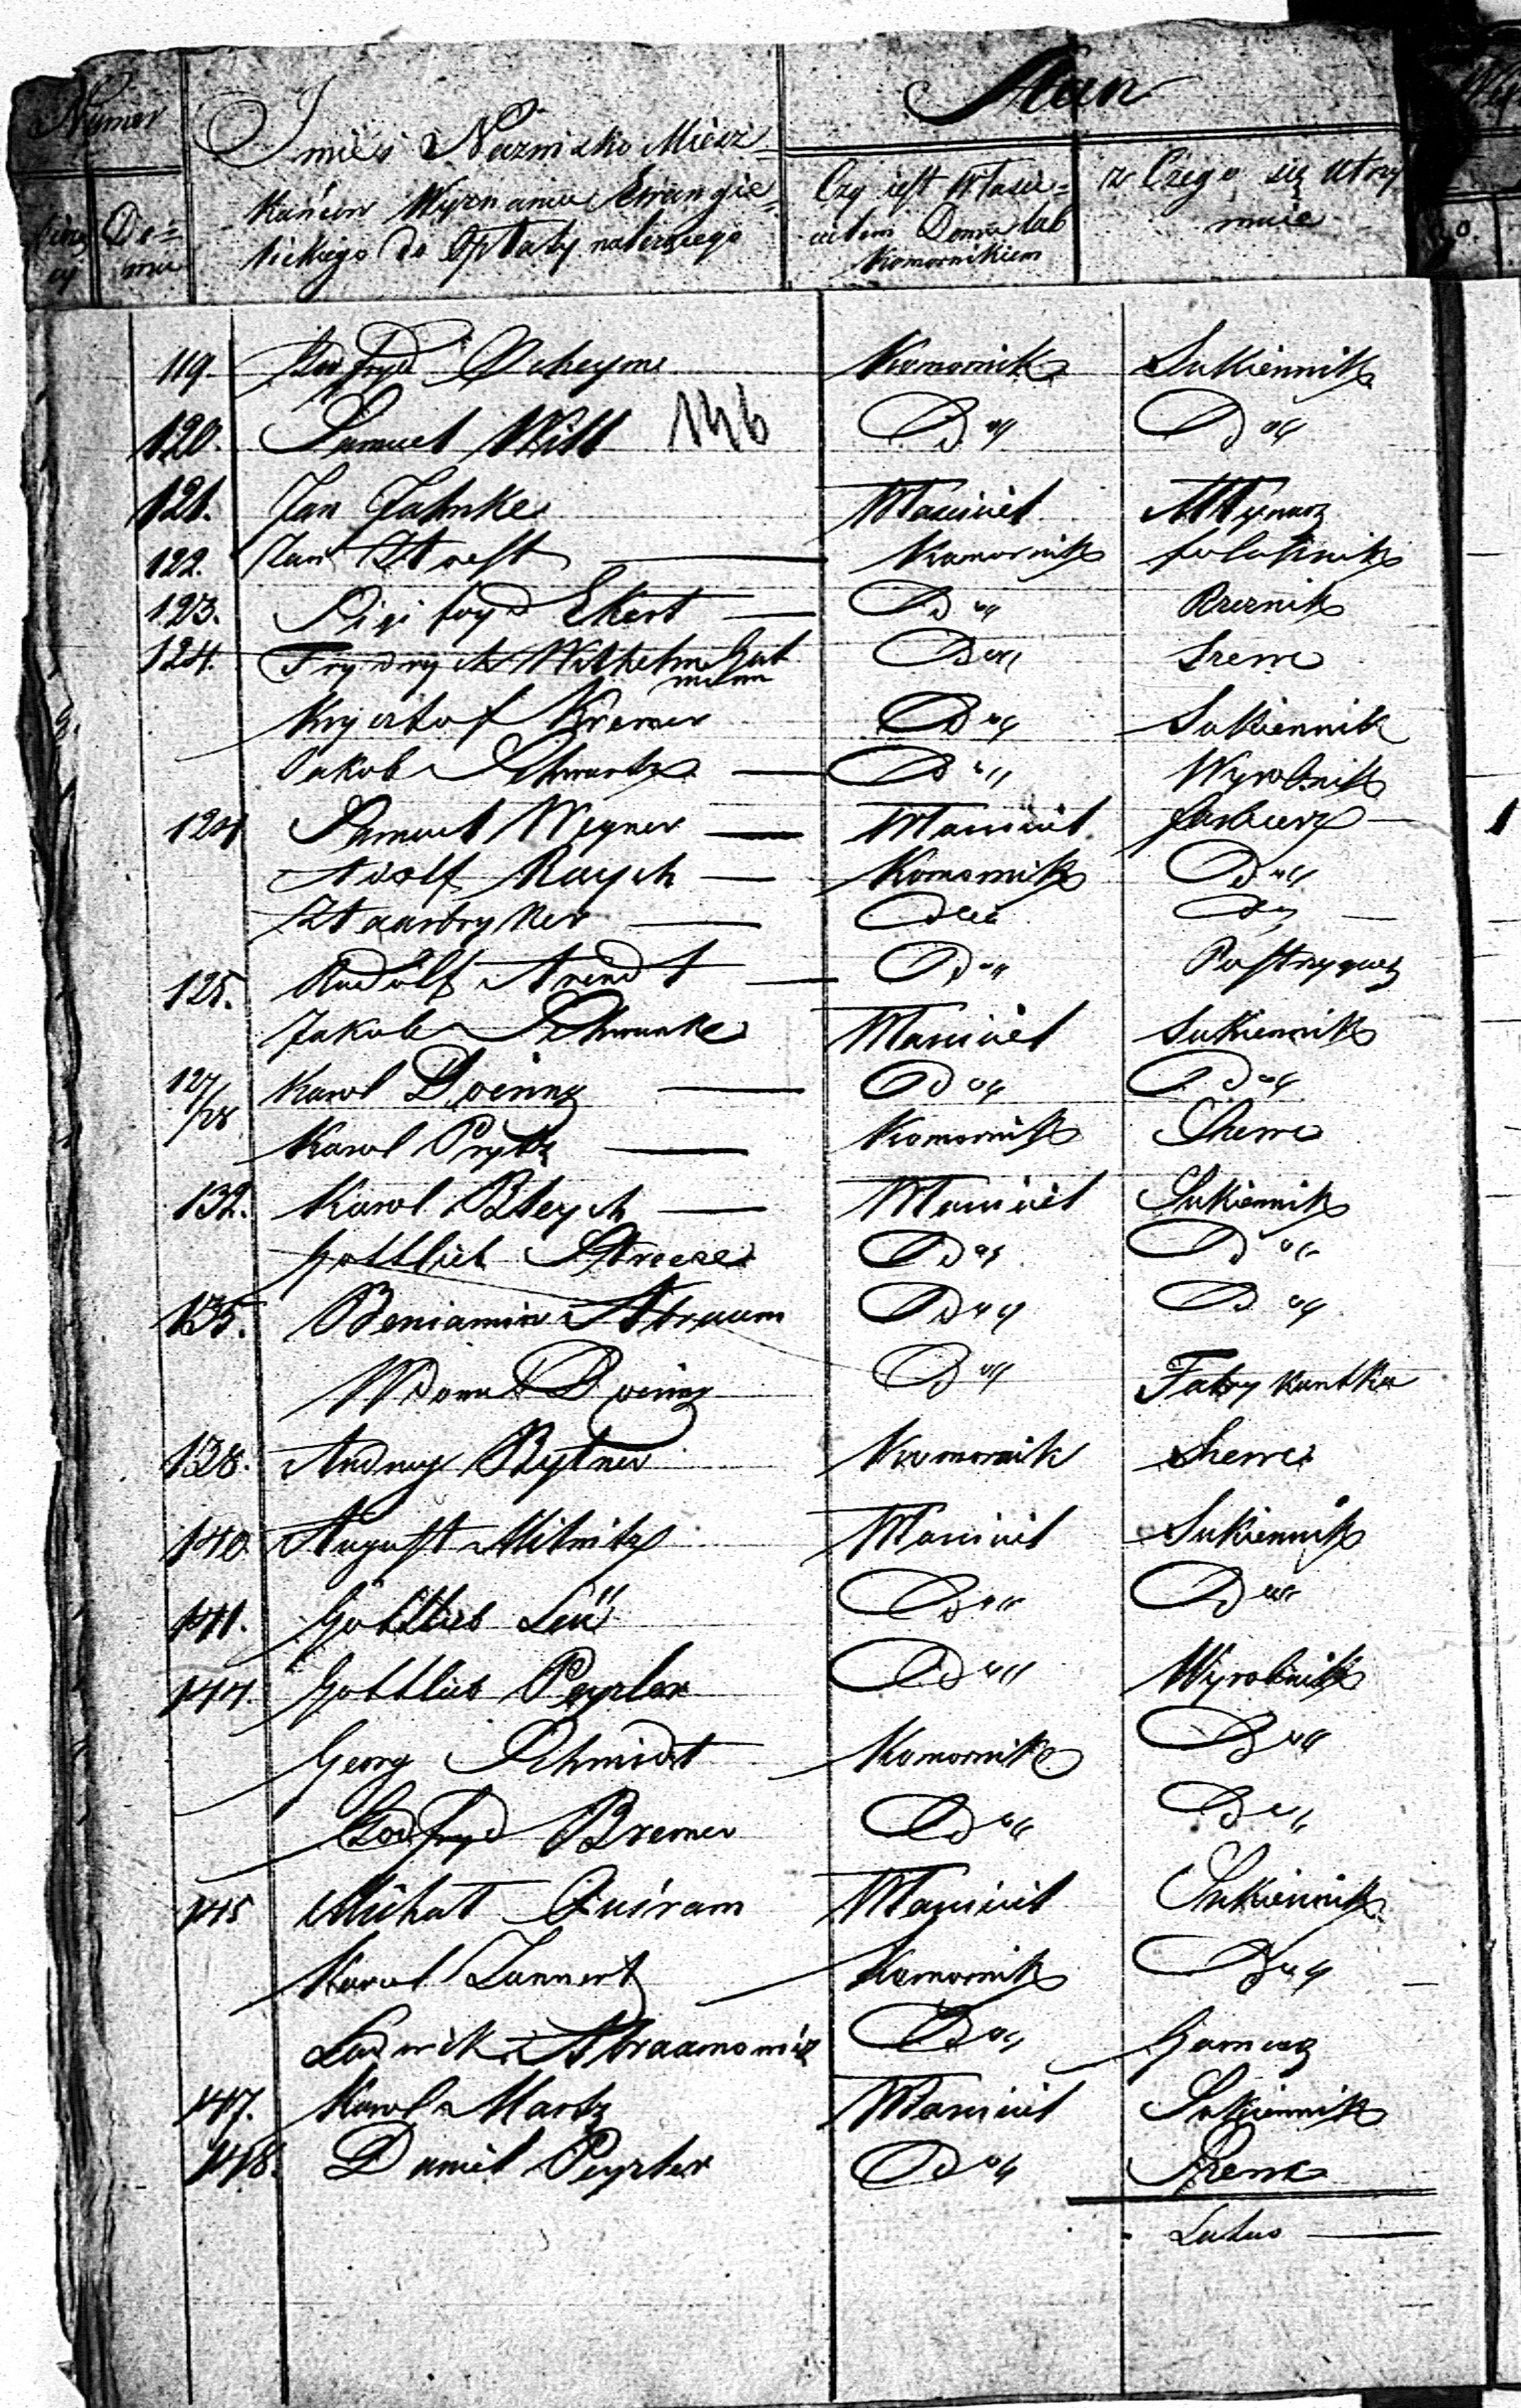 Numer
Stan
Imie i Nazwisko Miesz=
kańcow Wyznania Ewangie=
lickiego do Opłaty należącego
Do=
mu
Czy iest Właści=
cielem Domu lub
Komornikiem
z Czego się utrzy
muie
119. Godfryd Scheyme Komornik Sukiennik
120. Samuel Witt 146 Do Do
121. Jan Jahnke Właściciel Młynarz
122. Jan Komornik
123. Ekert Do Rzeznik
124. Frydrych Wilhelm Gut
mann Do Szewc
Krysztof Kremer Do Sukiennik
Jakob Schwartz Do Wyrobnik
124 Samuel Wegner Właściciel Farbierz
Adolf Raysch Komornik Do
Do Do
125. Rudolf Arendt Do Postrzygacz
Jakob Schwanke Właściciel Sukiennik
127/28 Karol Doering Do Do
Karol Prytz Komornik Szewc
132. Karol Bleych Właściciel Sukiennik
Gottlieb Streese Do Do
135. Beniamin Abraam Do Do
Wdowa Doering Do Fabrykantka
138. Andrzey Bytner Komornik Szewc
140 August Milnitz Właściciel Sukiennik
141. Gottlieb Leü Do Do
144. Gottlieb Peyzler Do Wyrobnik
Georg Schmidt Komornik Do
Godfryd Bremer Do Do
145 Michał Quiram Właściciel Sukiennik
Karol Lannert Komornik Do
Ludwik Abraamowicz Do Garncarz
147. Karol Martz Właściciel Sukiennik
148. Daniel Peyzler Do Szewc
Latus